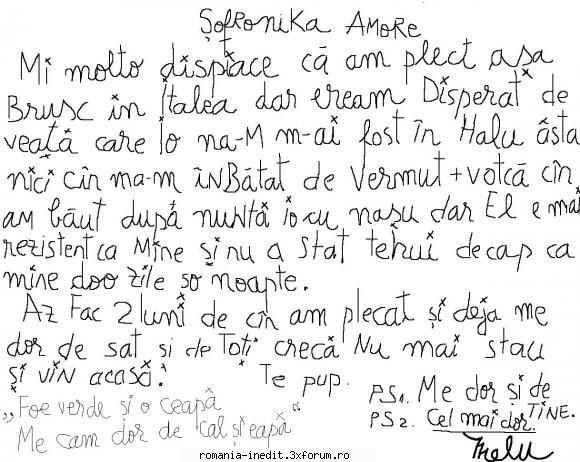 Șofronika Amore
Mi molto dispiace că am plect așa
Brusc in Italea dar eream Disperat de
veață care Io na-M m-ai fost în Halu ăsta
nici cîn ma-m înBătat de Vermut+votcă cîn
am băut după nuntă io cu nașu dar El e mai
rezistent ca Mine și nu a stat tehui de cap ca
mine doo zile șo noapte.
Az Fac 2 luni de cîn am plecat și deja me
dor de sat și de Toți crecă Nu mai stau
și vin acasă! Te pup.
„Foe verde și o ceapă
Me cam dor de cal și eapă“
PS1. Me dor și de TINE.
PS2. Cel mai dor.
Melu
romania-inedit.3xforum.ro